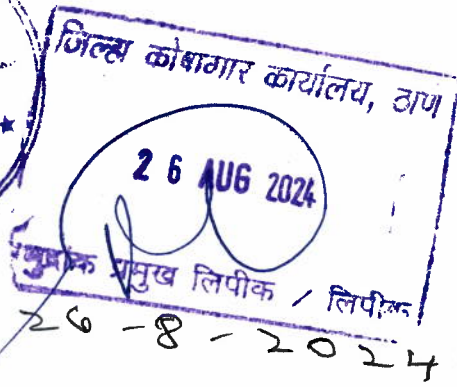 जिल्हा कोषागार कार्यालय, ठाणे
26 AUG 2024
मुद्रांक प्रमुख लिपीक / लिपीक
26-8-2024